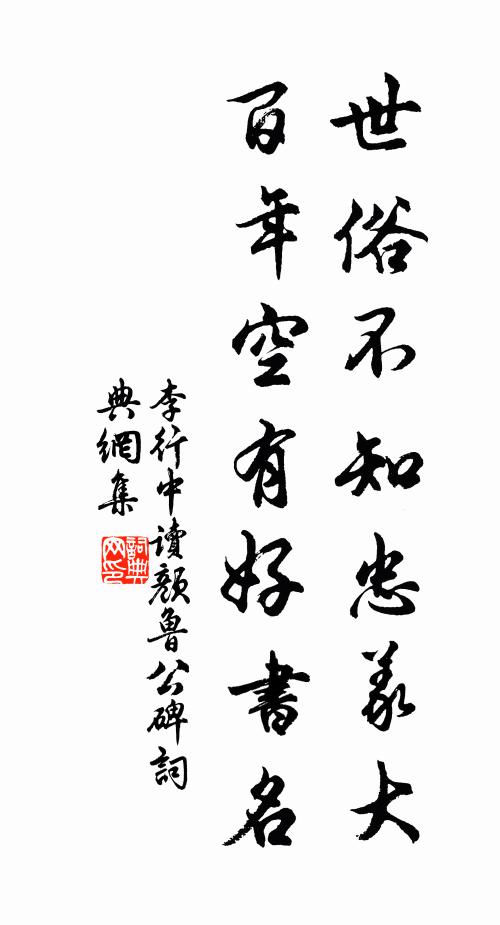 世俗不知忠義大
百年空有好書名
李行中讀顏魯公碑詞
典網集
詞典网印